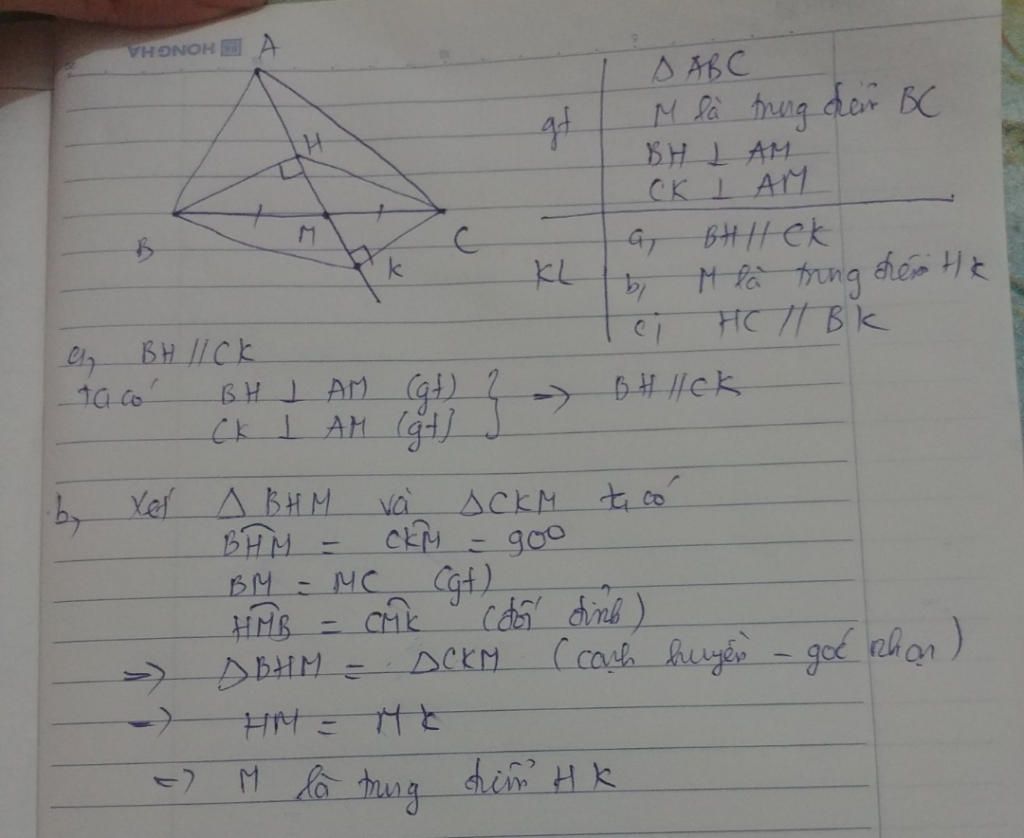 HONGHA
A
H
B
M
C
K
gt
Δ ABC
M là trung điểm BC
BH ⊥ AM
CK ⊥ AM
KL
a, BH // CK
b, M là trung điểm HK
c, HC // BK
a, BH // CK
ta có BH ⊥ AM (gt)
CK ⊥ AM (gt)
} => BH // CK
b, Xét Δ BHM và Δ CKM ta có
\widehat{BHM} = \widehat{CKM} = 900
BM = MC (gt)
\widehat{HMB} = \widehat{CMK} (đối đỉnh)
=> ΔBHM = ΔCKM (cạnh huyền - góc nhọn)
=> HM = MK
=> M là trung điểm HK